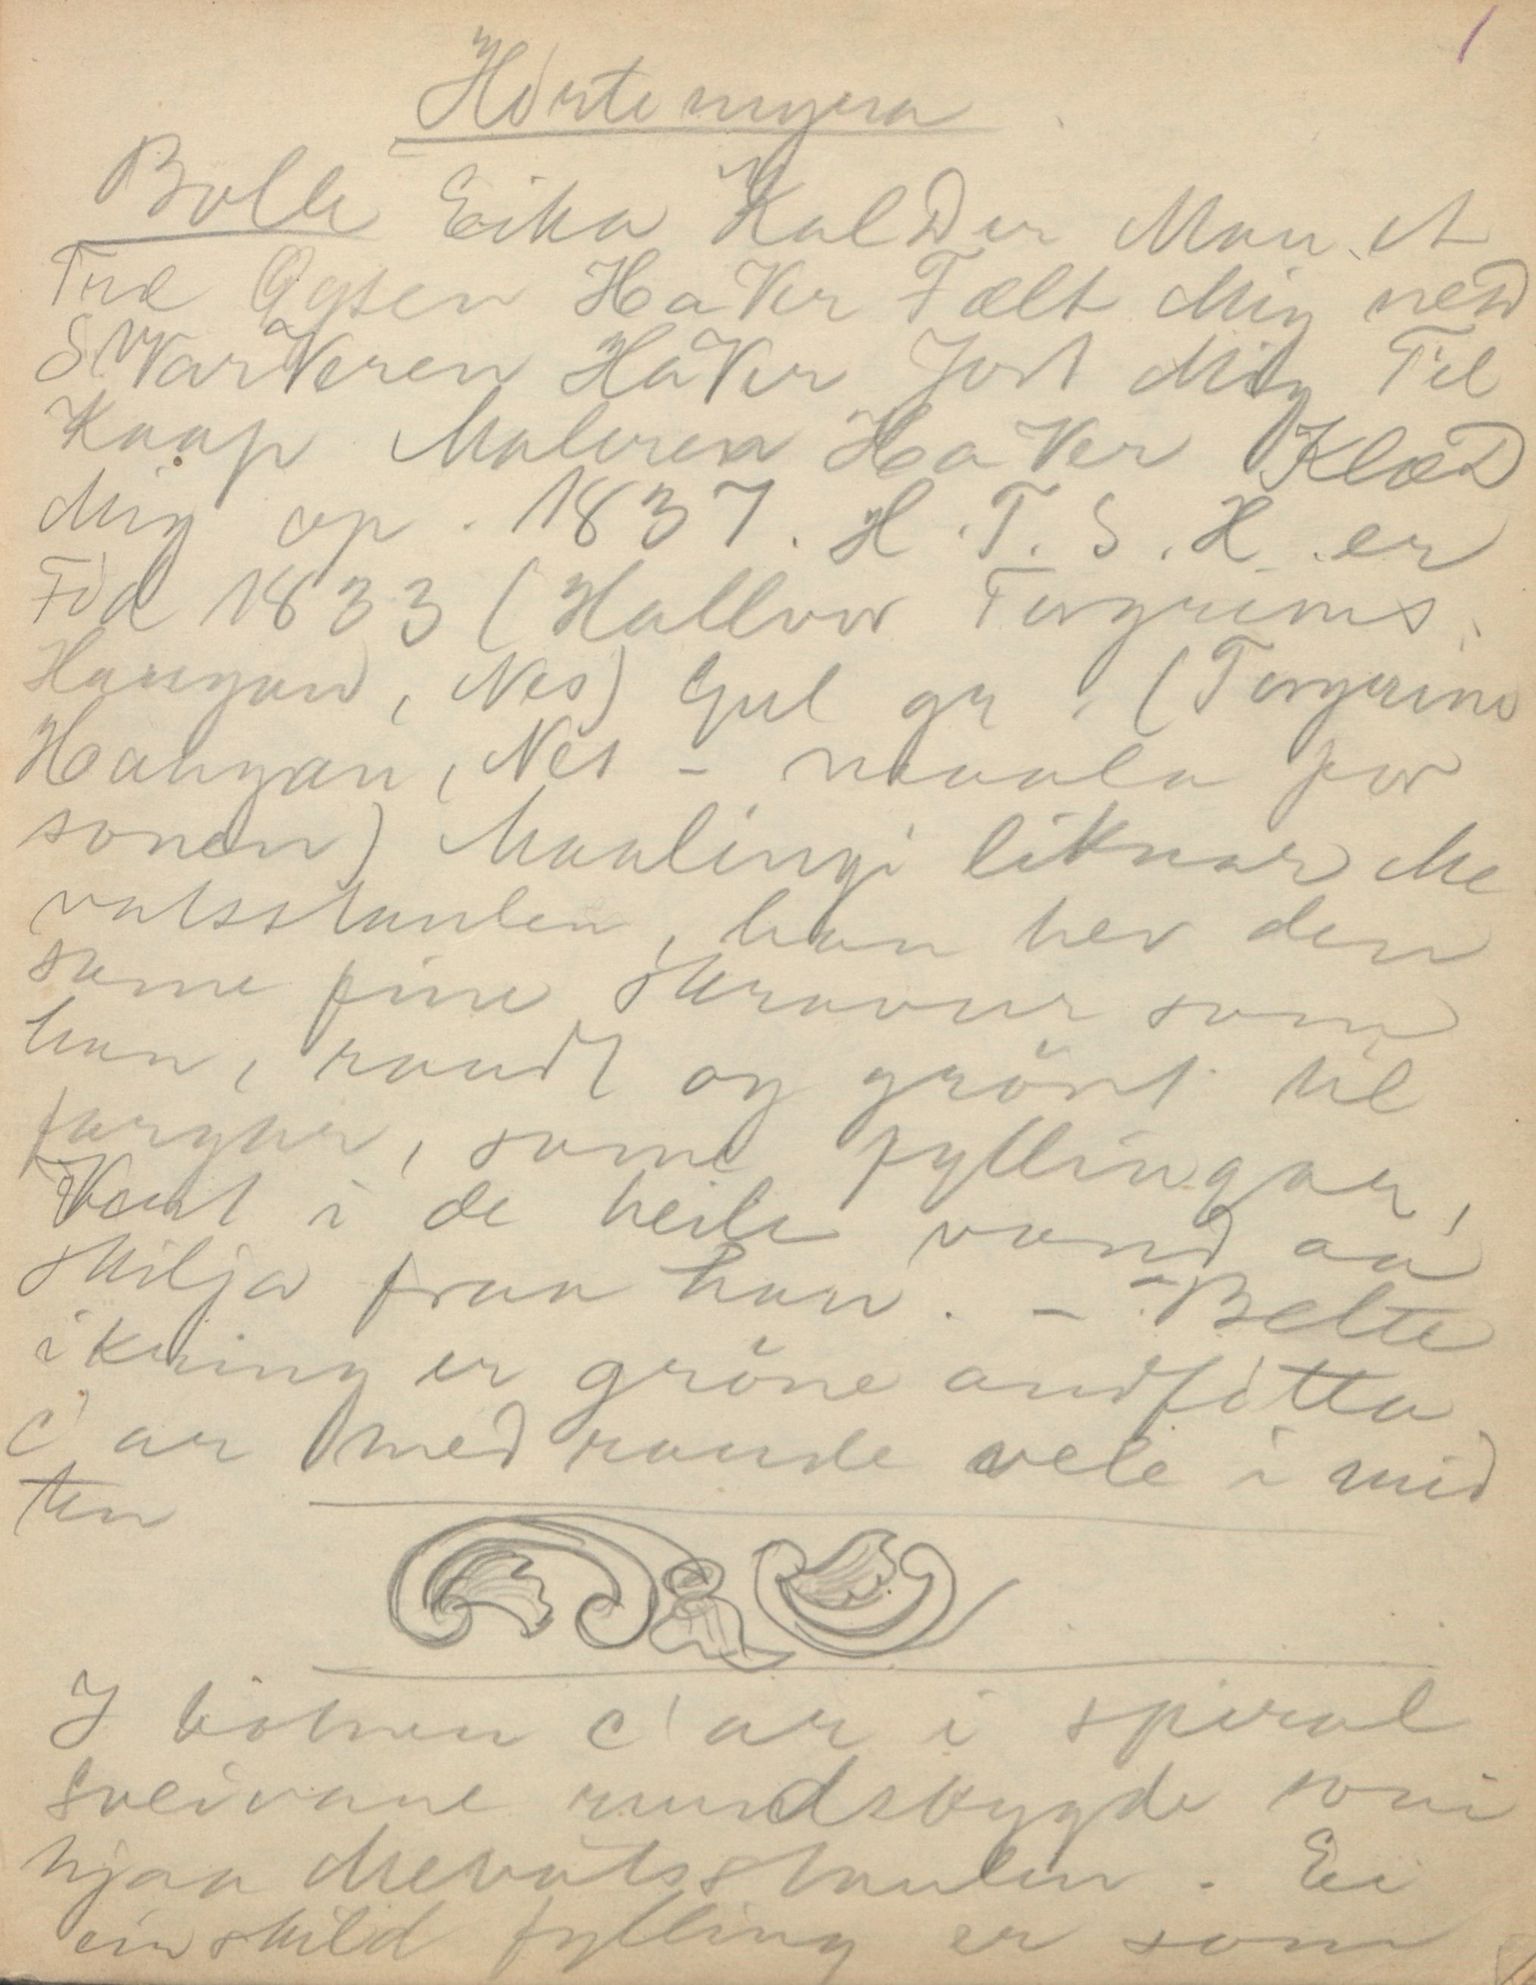 1
Hortemyra
Bolle Eika Kalder Man et
Træ Ögsen HaVer Fælt Mig neD
SVarVeren HaVer Jort Mig Til
Kaap Maleren HaVer KlæD
Mig op. 1837. H.T.S.H. er
Föd 1833 (Hallvor Torgrims.
Haugan, Nes) Gul gr. (Torgrim
Haugan, Nes - maala for
sonen) Maalingi liknar Me
vatsstaulen, han hev den
same fine skravur som
han, raudt og grönt til
fargar, same fyllingar,
Vent i de heile vond aa
skilja fraa han. - Belte
ikring er gröne andfötta
c'ar med raude vele i mid
ten
I botnen c'ar i spiral
sveivane rundskygde som i
hjaa Mevatsstaulen. Ei
einskild fylling er som